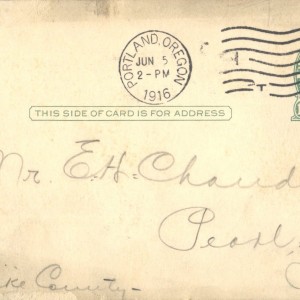 PORTLAND, OREGON
JUN 5
2-PM
1916
THIS SIDE OF CARD IS FOR ADDRESS
Mr. E. H. Chand
Pearl,
ike County